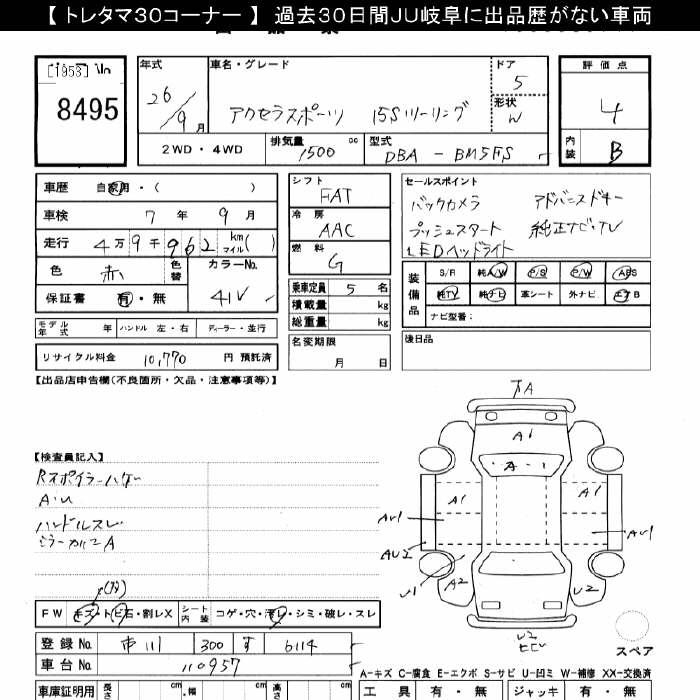 【 トレタマ30コーナー 】 過去30日間JU岐阜に出品歴がない車両
8495
年式
26/9月
車名・グレード
アクセラスポーツ 15Sツーリング
ドア
5
形状
W
評価点
4
内装
B
2WD・4WD
排気量 1500 cc
型式 DBA - BM5FS
車歴 自家用・( )
車検 7年 9月
走行 4万9千962 km マイル( )
色 赤 色替
カラーNo. 41V
保証書 有・無
モデル年式 年 ハンドル 左・右 ディーラー・並行
リサイクル料金 10,770 円 預託済
シフト FAT
冷房 AAC
燃料 G
乗車定員 5 名
積載量 kg
総重量 kg
名変期限
月 日
セールスポイント
バックカメラ アドバンスドキー
プッシュスタート 純正ナビ・TV
LEDヘッドライト
装備品
S/R 純A/W P/S P/W ABS
純TV 純ナビ 革シート 外ナビ エアB
ナビ型番:
後日品
【出品店申告欄(不良箇所・欠品・注意事項等)】
【検査員記入】
Rスポイラーハゲ
A・U
ハンドルスレ
ミラーカバーA
FW キズ・トビ石・割レX
シート内装 コゲ・穴・汚レ・シミ・破レ・スレ
登録No. 市川 300 す 6114
車台No. 110957
車庫証明用 長さ cm 幅 cm 高さ cm
A
A1
A-1
A1
A1
AU1
AU1
AU2
U1
A2
U2
U2
スペア
A-キズ C-腐食 E-エクボ S-サビ U-凹ミ W-補修 XX-交換済
工具 有・無 ジャッキ 有・無